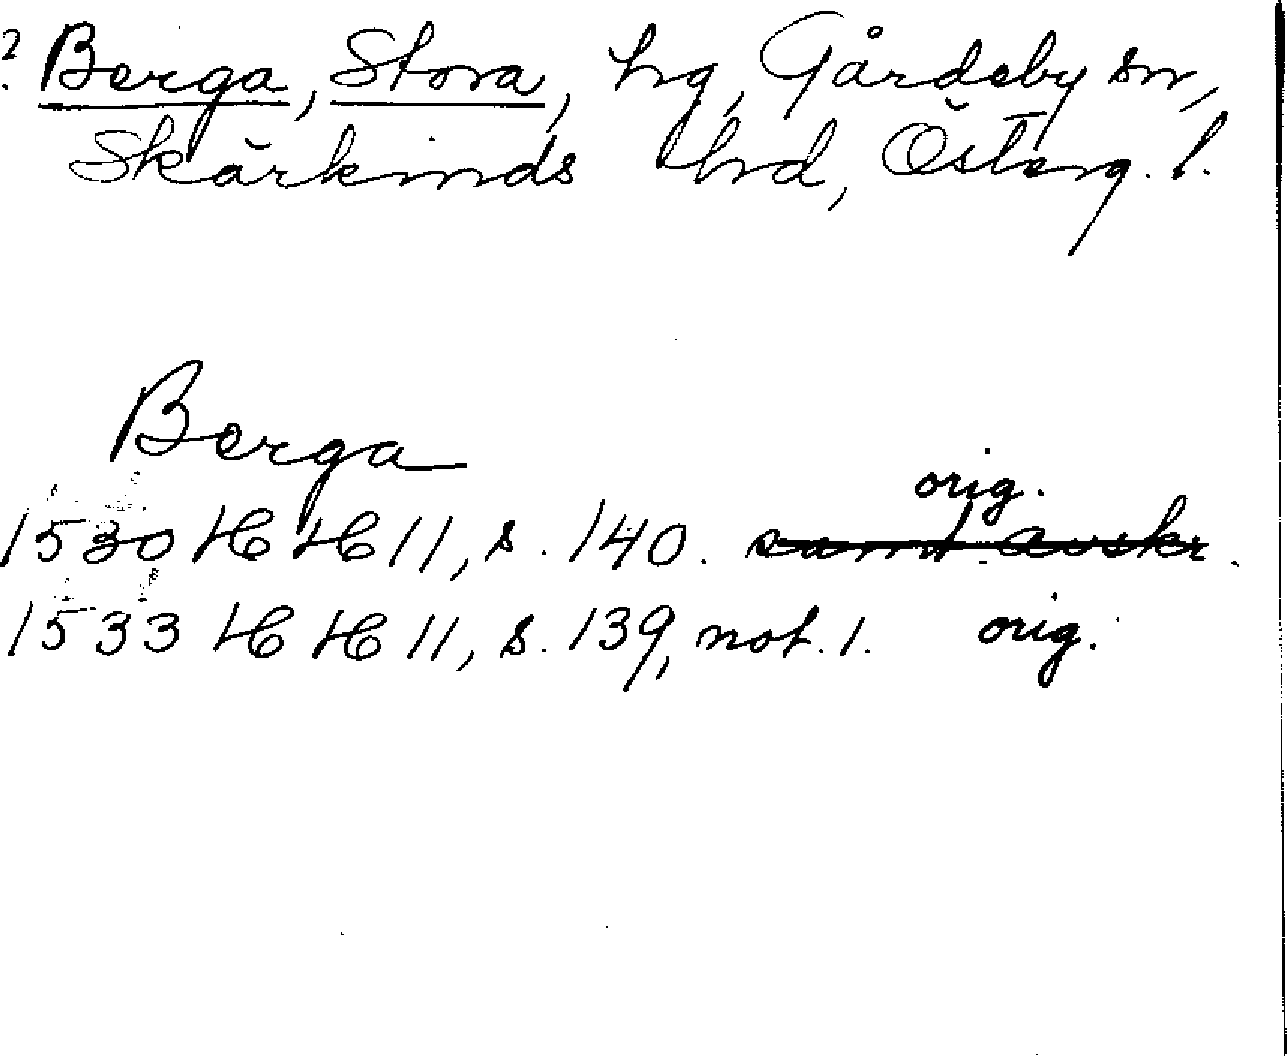 ? Berga, Stora, hg, Gårdeby sn,
Skärkinds hd, Österg. l.
Berga
orig.
1530 HH 11, s. 140. samt. avskr.
1533 HH 11, s. 139, not. 1. orig.